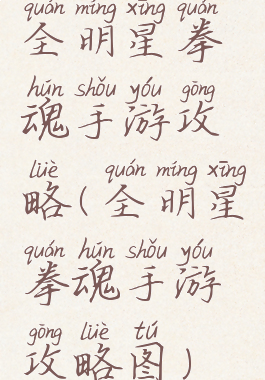 quán míng xīng quán
全明星拳
hún shǒu yóu gōng
魂手游攻
lüè quán míng xīng
略(全明星
quán hún shǒu yóu
拳魂手游
gōng lüè tú
攻略图)